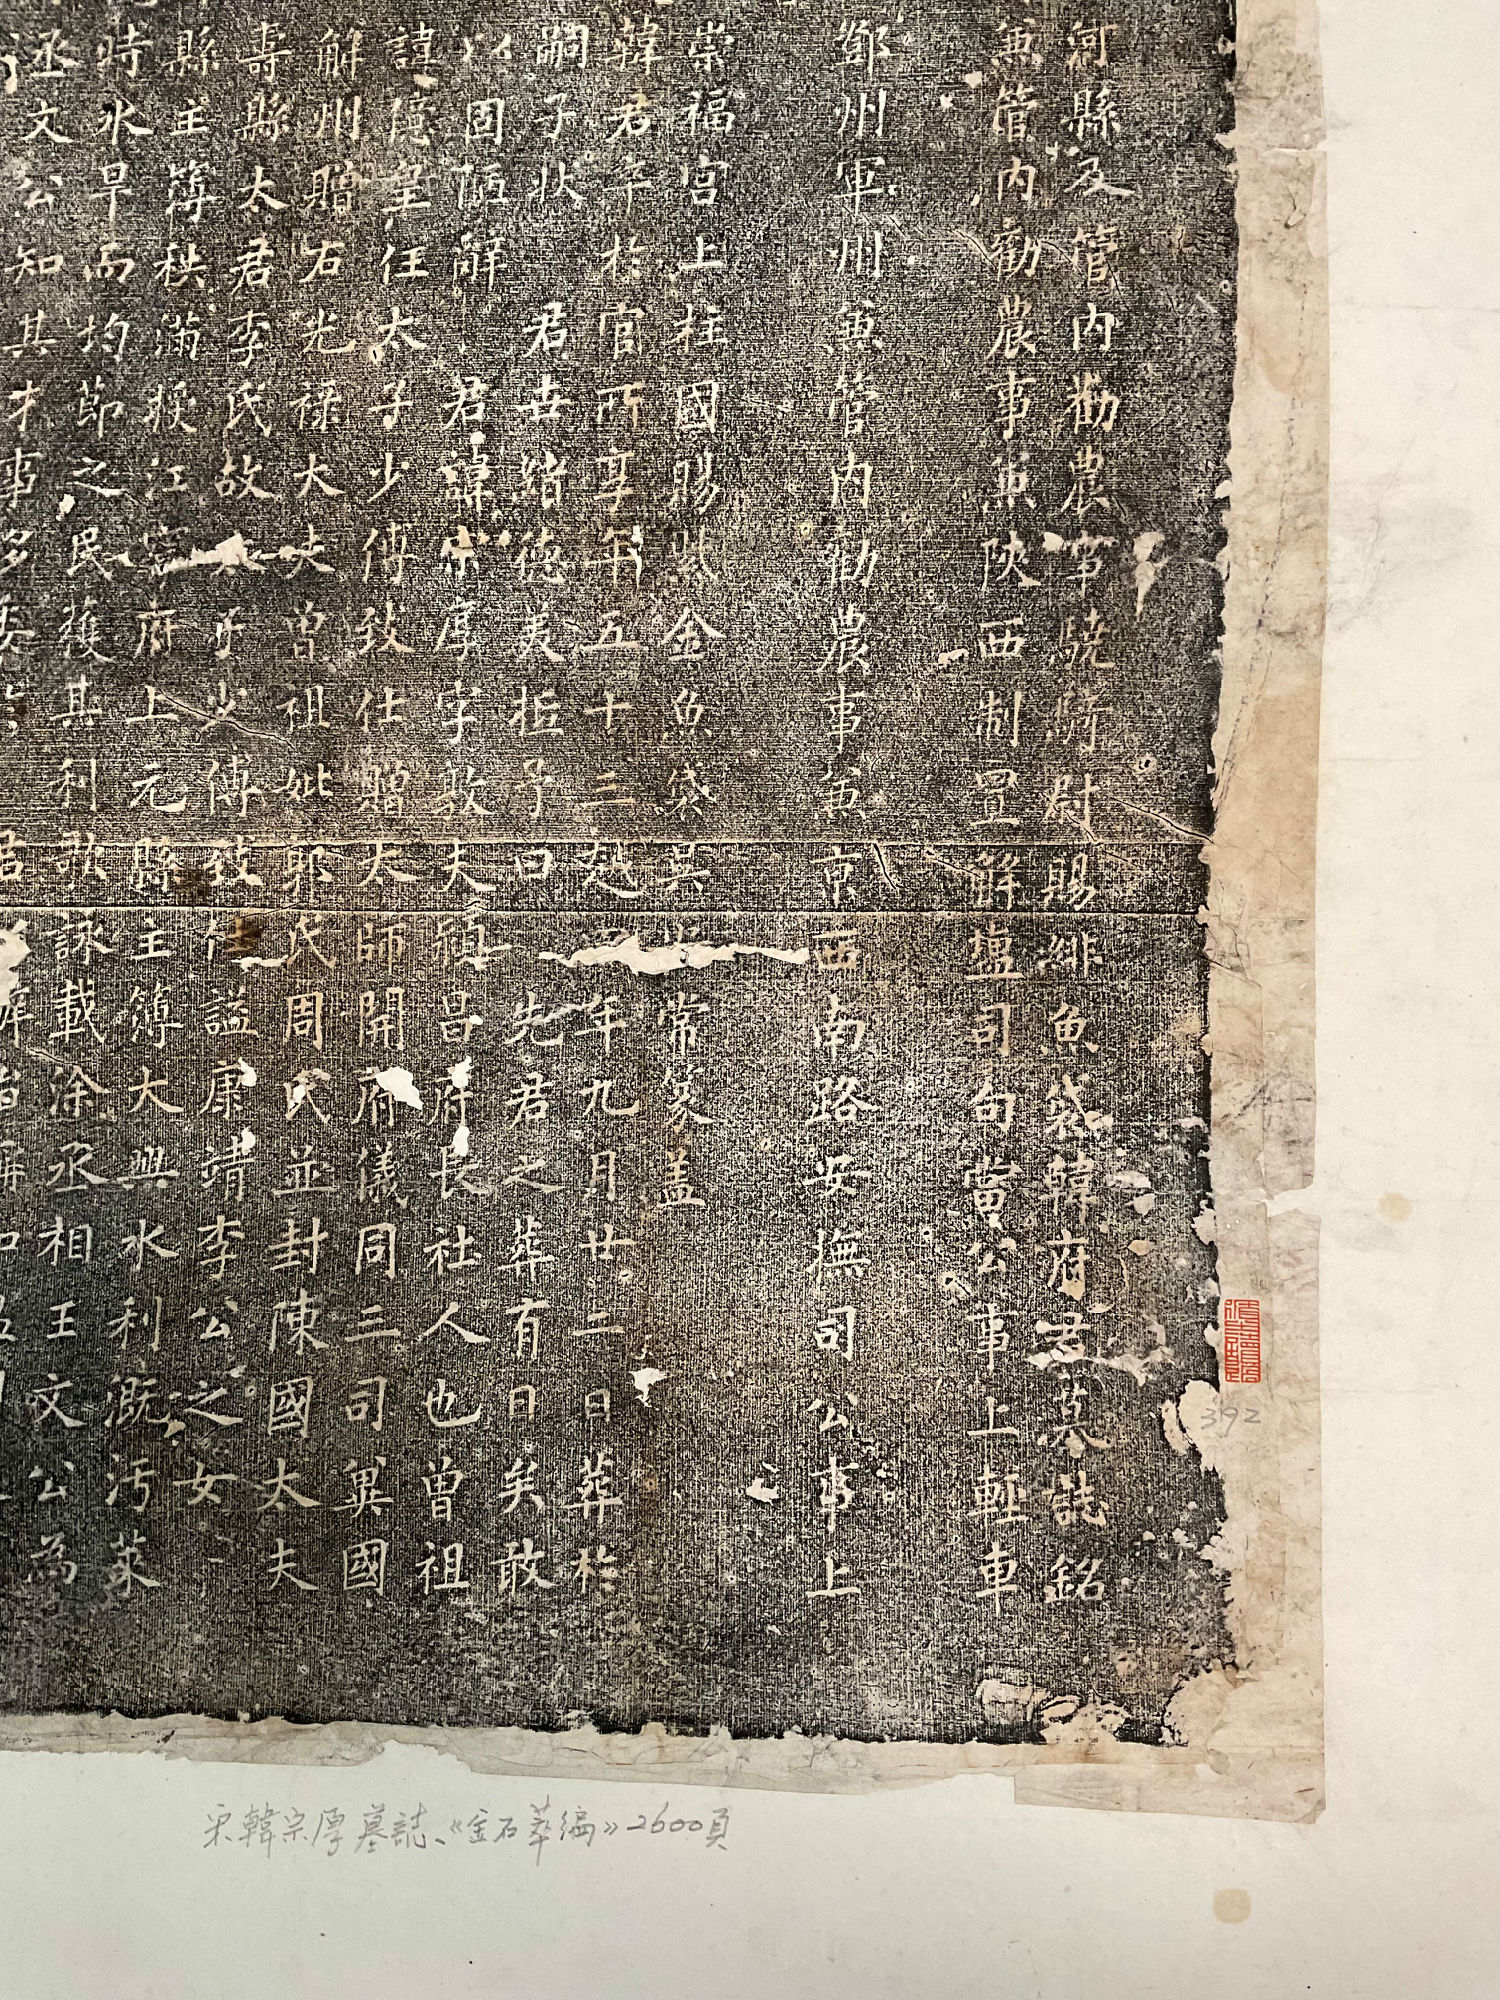 河縣及管內勸農事驍騎尉賜緋魚袋韓府君墓誌銘
兼管內勸農事兼陝西制置解鹽司句當公事上輕車
鄧州軍州兼管內勸農事兼京西南路安撫司公事上
崇福宮上柱國賜紫金魚袋 常篆蓋
韓君卒於官所享年五十三越 年九月廿二日葬於
嗣子狀 君世緒德美拒予曰 先君之葬有日矣敢
以固陋辭 君諱宗厚字敦夫潁昌府長社人也曾祖
諱億皇任太子少傅致仕贈太師開府儀同三司冀國
解州贈右光祿大夫曾祖妣郭氏周氏並封陳國太夫
壽縣太君李氏故太子少傅致仕謚康靖李公之女
縣主簿秩滿授江寧府上元縣主簿大興水利溉污萊
時水旱而均節之民獲其利歌詠載塗丞相王文公為
丞文公知其才事多委
宋韓宗厚墓誌、《金石萃編》2600頁
392